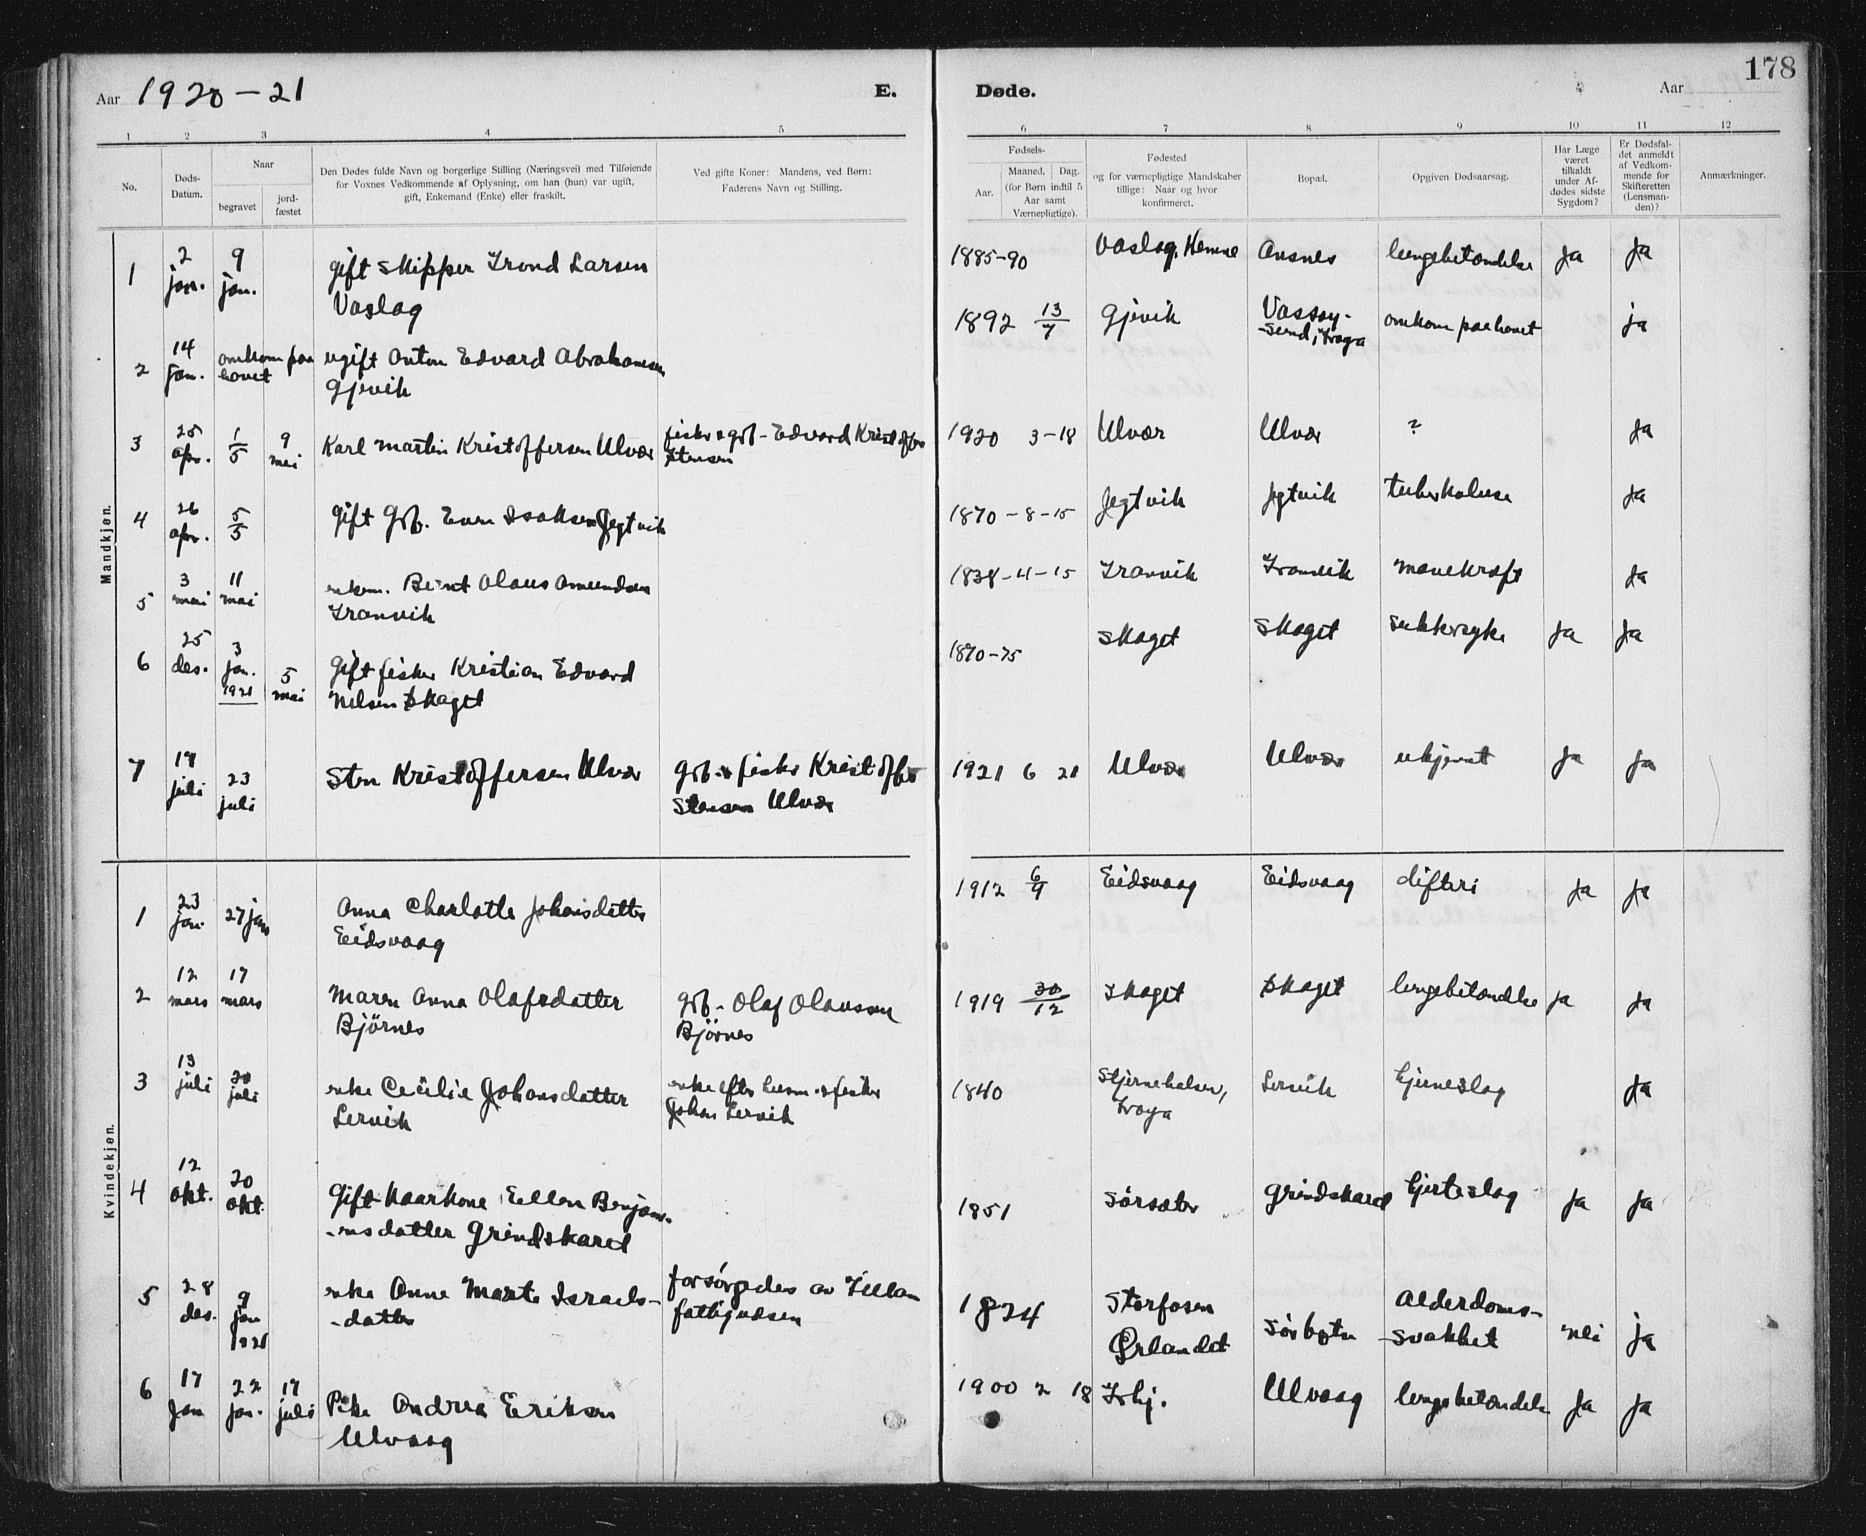 178
Aar 1920-21
E. Døde.
Aar
1 2 3 4 5 6 7 8 9 10 11 12
No.
Døds-
Datum.
Naar
begravet
jord-
fæstet
Den Dødes fulde Navn og borgerlige Stilling (Næringsvei) med Tilføiende
for Voxnes Vedkommende af Oplysning, om han (hun) var ugift,
gift, Enkemand (Enke) eller fraskilt.
Ved gifte Koner: Mandens, ved Børn:
Faderens Navn og Stilling.
Fødsels-
Aar.
Maaned. Dag.
(for Børn indtil 5
Aar samt
Værnepligtige).
Fødested
og for værnepligtige Mandskaber
tillige: Naar og hvor
konfirmeret.
Bopæl.
Opgiven Dødsaarsag.
Har Læge
været
tilkaldt
under Af-
dødes sidste
Sygdom?
Er Dødsfal-
det anmeldt
af Vedkom-
mende for
Skifteretten
(Lensman-
den)?
Anmærkninger.
Mandkjøn.
1 2 jan. 9 jan. gift skipper Trond Larsen
Vaslag
1885-90 Vaslag, Hemne Ansnes lungebetændelse Ja Ja
2 14 jan. omkom paa
havet
ugift Anton Edvard Abrahamsen
Gjevik
1892 13/7 Gjevik Vassøy-
sund, Frøya
omkom paa havet ja
3 25 apr. 1/5 9 mai Karl Martin Kristoffersen Ulvær fisker & gb. Edvard Kristoffer
Stensen
1920 3-18 Ulvær Ulvær ? Ja
4 26 apr. 5/5 gift gb. Even Isaksen Jegtvik
1870-8-15 Jegtvik Jegtvik tuberkulose Ja
5 3 mai 11 mai enkem. Bernt Olaus Amundsen
Tranvik
1838-4-15 Tranvik Tranvik mavekræft Ja
6 25 des. 3 jan. 1921 5 mai gift fisker Kristian Edvard
Nelsen Skaget
1870-75 Skaget Skaget sukkersyke Ja Ja
7 19 juli 23 juli Sten Kristoffersen Ulvær gb. & fisker Kristoffer
Stensen Ulvær
1921 6 21 Ulvær Ulvær ukjent Ja Ja
Kvindekjøn.
1 23 jan. 27 jan Anna Charlotte Johansdatter
Eidsvaag
1912 6/9 Eidsvaag Eidsvaag difteri Ja Ja
2 12 mars 17 mars Maren Anna Olafsdatter
Bjørnes
gb. Olaf Olaussen
Bjørnes
1919 30/12 Skaget Skaget lungebetændelse Ja Ja
3 13 juli 20 juli enke Cecilie Johansdatter
Lervik
enke efter husm. & fisker
Johan Lervik
1840 Stjernehalsen,
Frøya
Lervik hjerneslag Ja
4 12 okt. 20 okt. gift kaarkone Ellen Benjam-
-insdatter Grindskaret
1851 Sørsæter Grindskaret hjerteslag Ja Ja
5 28 des. 9 jan 1921 enke Anne Marta Israels-
-datter
forsørgedes av Fillan
fattigvæsen
1824 Storfosen
Ørlandet
Sørbotn Alderdoms-
svakhet
nei ja
6 17 jan 22 jan. 17 juli Pike Andrea Eriksen
Ulvaag
1900 2 18 Ulvaag lungebetændelse Ja Ja